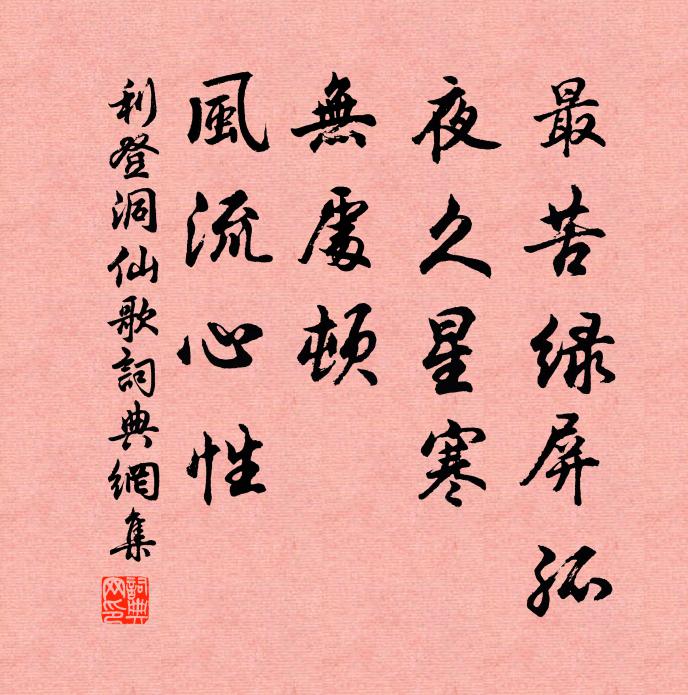 最苦绿屏孤
夜久星寒
無處頓
風流心性
利登洞仙歌詞典網集
詞典網印